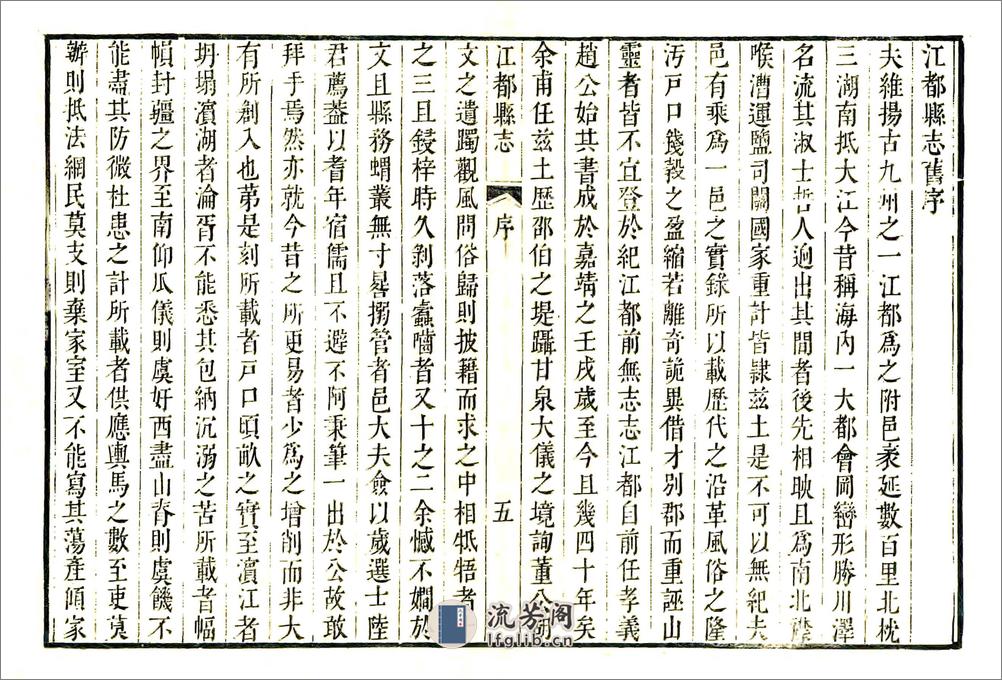 江都縣志舊序
夫維揚古九州之一江都爲之附邑袤延數百里北枕
三湖南抵大江今昔稱海內一大都會岡巒形勝川澤
名流其淑士哲人逈出其間者後先相映且爲南北襟
喉漕運鹽司關國家重計皆隷茲土是不可以無紀夫
邑有乘爲一邑之實錄所以載歷代之沿革風俗之隆
汚戸口錢穀之盈縮若離奇詭異借才別郡而重誣山
靈者皆不宜登於紀江都前無志志江都自前任孝義
趙公始其書成於嘉靖之壬戌歲至今且幾四十年矣
余甫任茲土歷邵伯之堤躡甘泉大儀之境詢董公
江都縣志
序
五
文之遺躅觀風問俗歸則披籍而求之中相牴牾者
之三且鋟梓時久剥落蠹嚙者又十之二余憾不嫺於
文且縣務蝟叢無寸晷搦管者邑大夫僉以歲選士陸
君薦葢以耆年宿儒且不避不阿秉筆一出於公故敢
拜手焉然亦就今昔之所更易者少爲之增削而非大
有所創入也第是刻所載者戸口頃畝之實至濵江者
坍塌濵湖者淪胥不能悉其包納沉溺之苦所載者幅
幀封疆之界至南仰瓜儀則虞奸西盡山脊則虞饑不
能盡其防微杜患之計所載者供應輿馬之數至吏莫
辦則抵法網民莫支則棄家室又不能寫其蕩產傾家
流芳阁
lfglib.cn